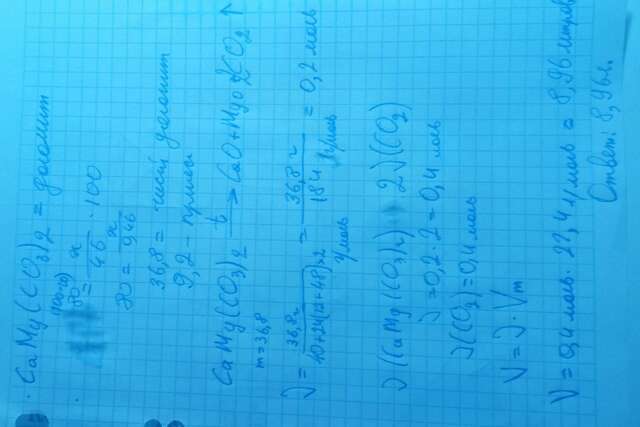 CaMg(CO3)2 = доломит
(100-20)
80 = x/46 · 100
80 = x/0,46
36,8 = чист доломит
9,2 - примеси
CaMg(CO3)2 t→ CaO + MgO + 2CO2 ↑
m = 36,8
ν = 36,8г / 40+24(12+48)×2 г/моль = 36,8г / 184 г/моль = 0,2 моль
ν(CaMg(CO3)2) 2ν(CO2)
ν = 0,2 · 2 = 0,4 моль
ν(CO2) = 0,4 моль
V = ν · Vm
V = 0,4 моль · 22,4 л/моль = 8,96 литров
Ответ: 8,96 л.